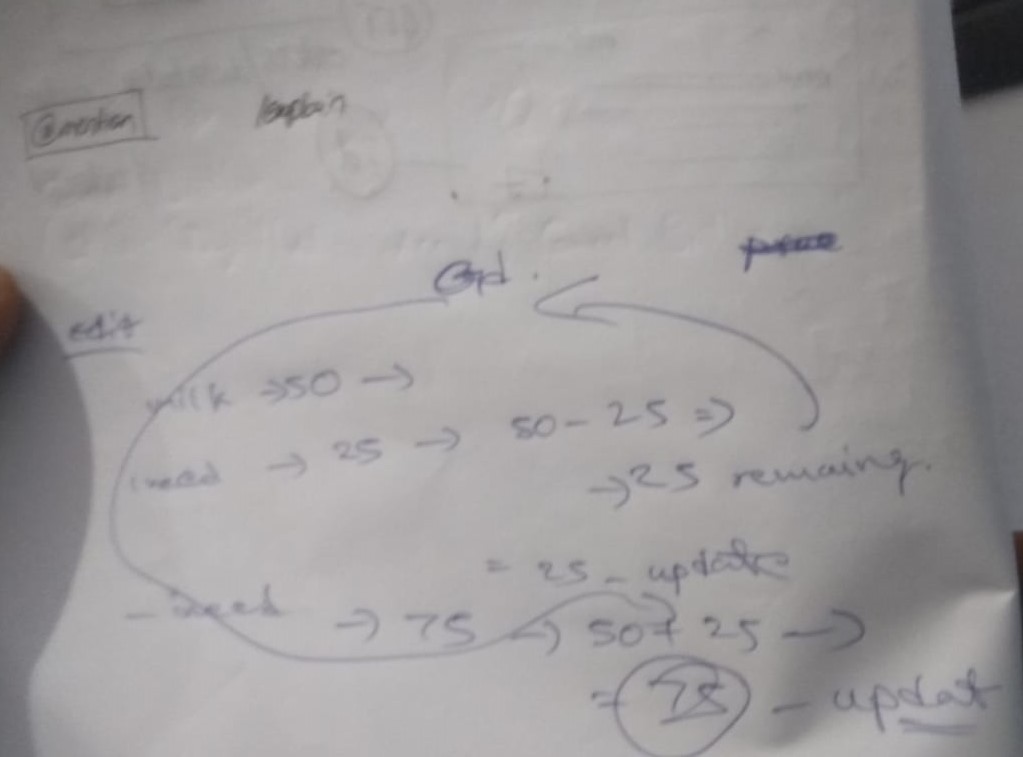 @mention /explain
edit
milk → 50 →
need → 25 → 50 - 25 ⇒
→ 25 remaing.
= 25 - update
- need → 75 → 50 + 25 →
= 75 - updat